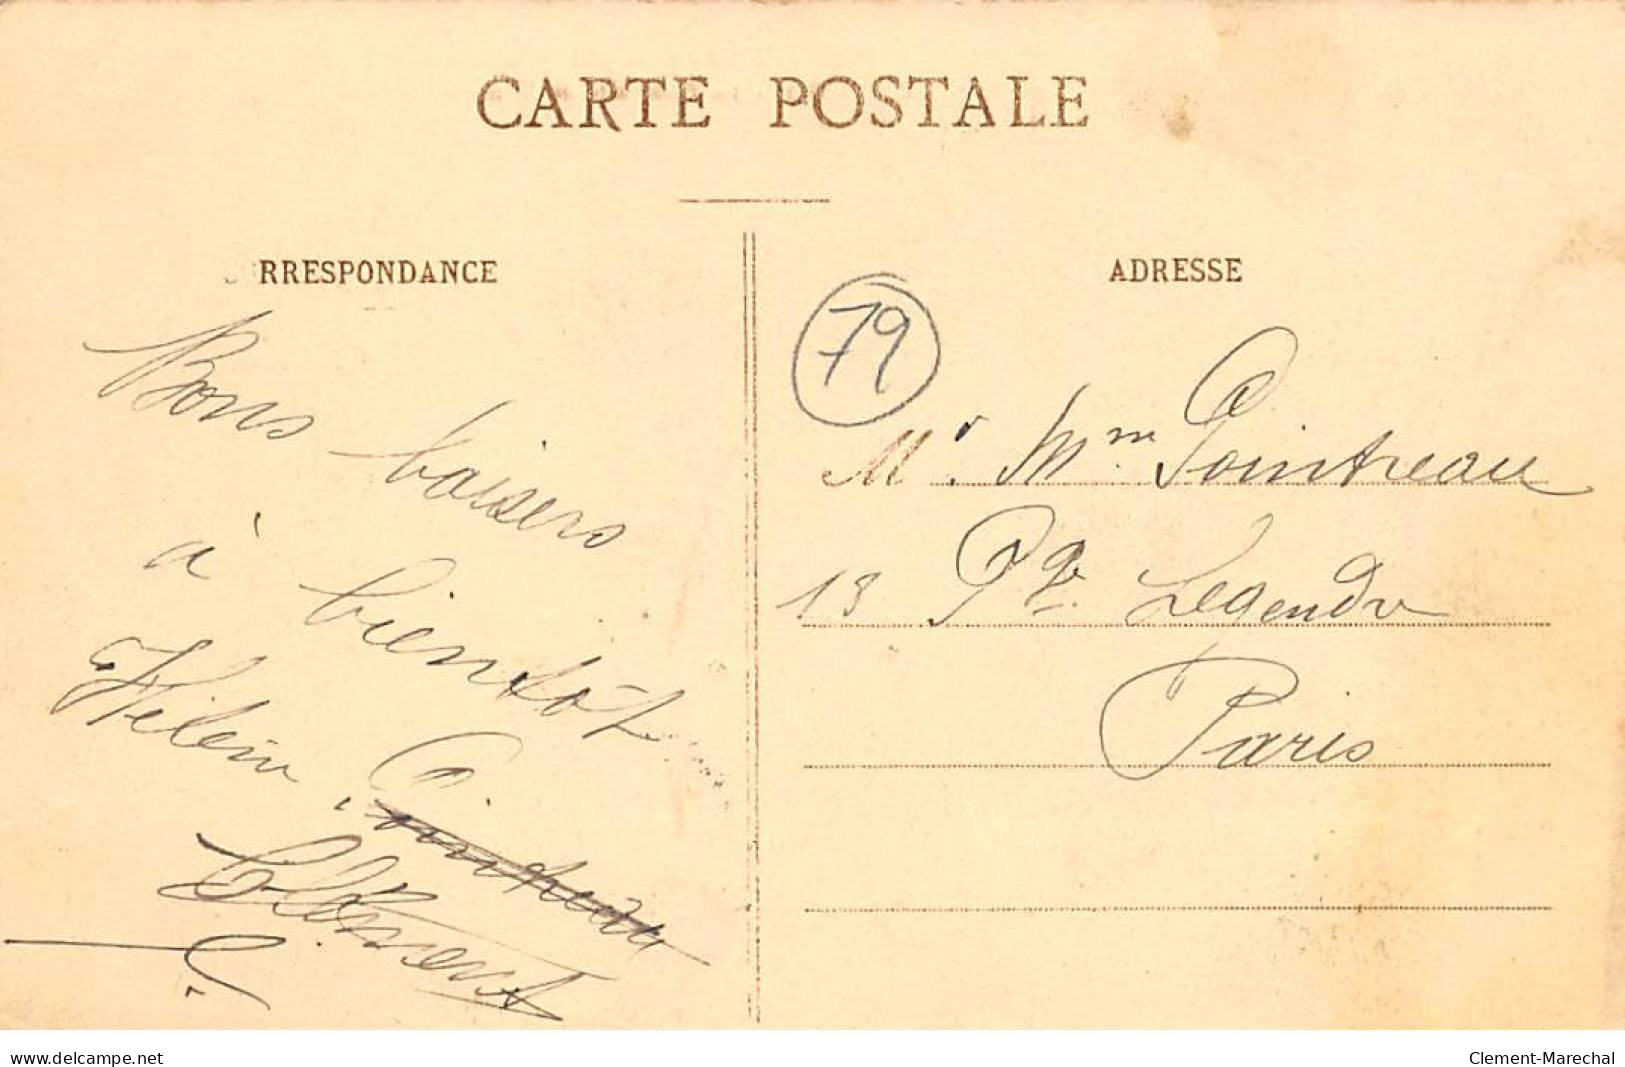 CARTE POSTALE
RRESPONDANCE
Bons baisers
à bientôt
Hélène
Clément
ADRESSE
79
Mr. Mme Pointreau
13 Pge Legendre
Paris
www.delcampe.net
Clement-Marechal